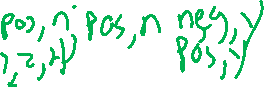 pos, n pos, n neg, y
1, 2, 4 pos, y